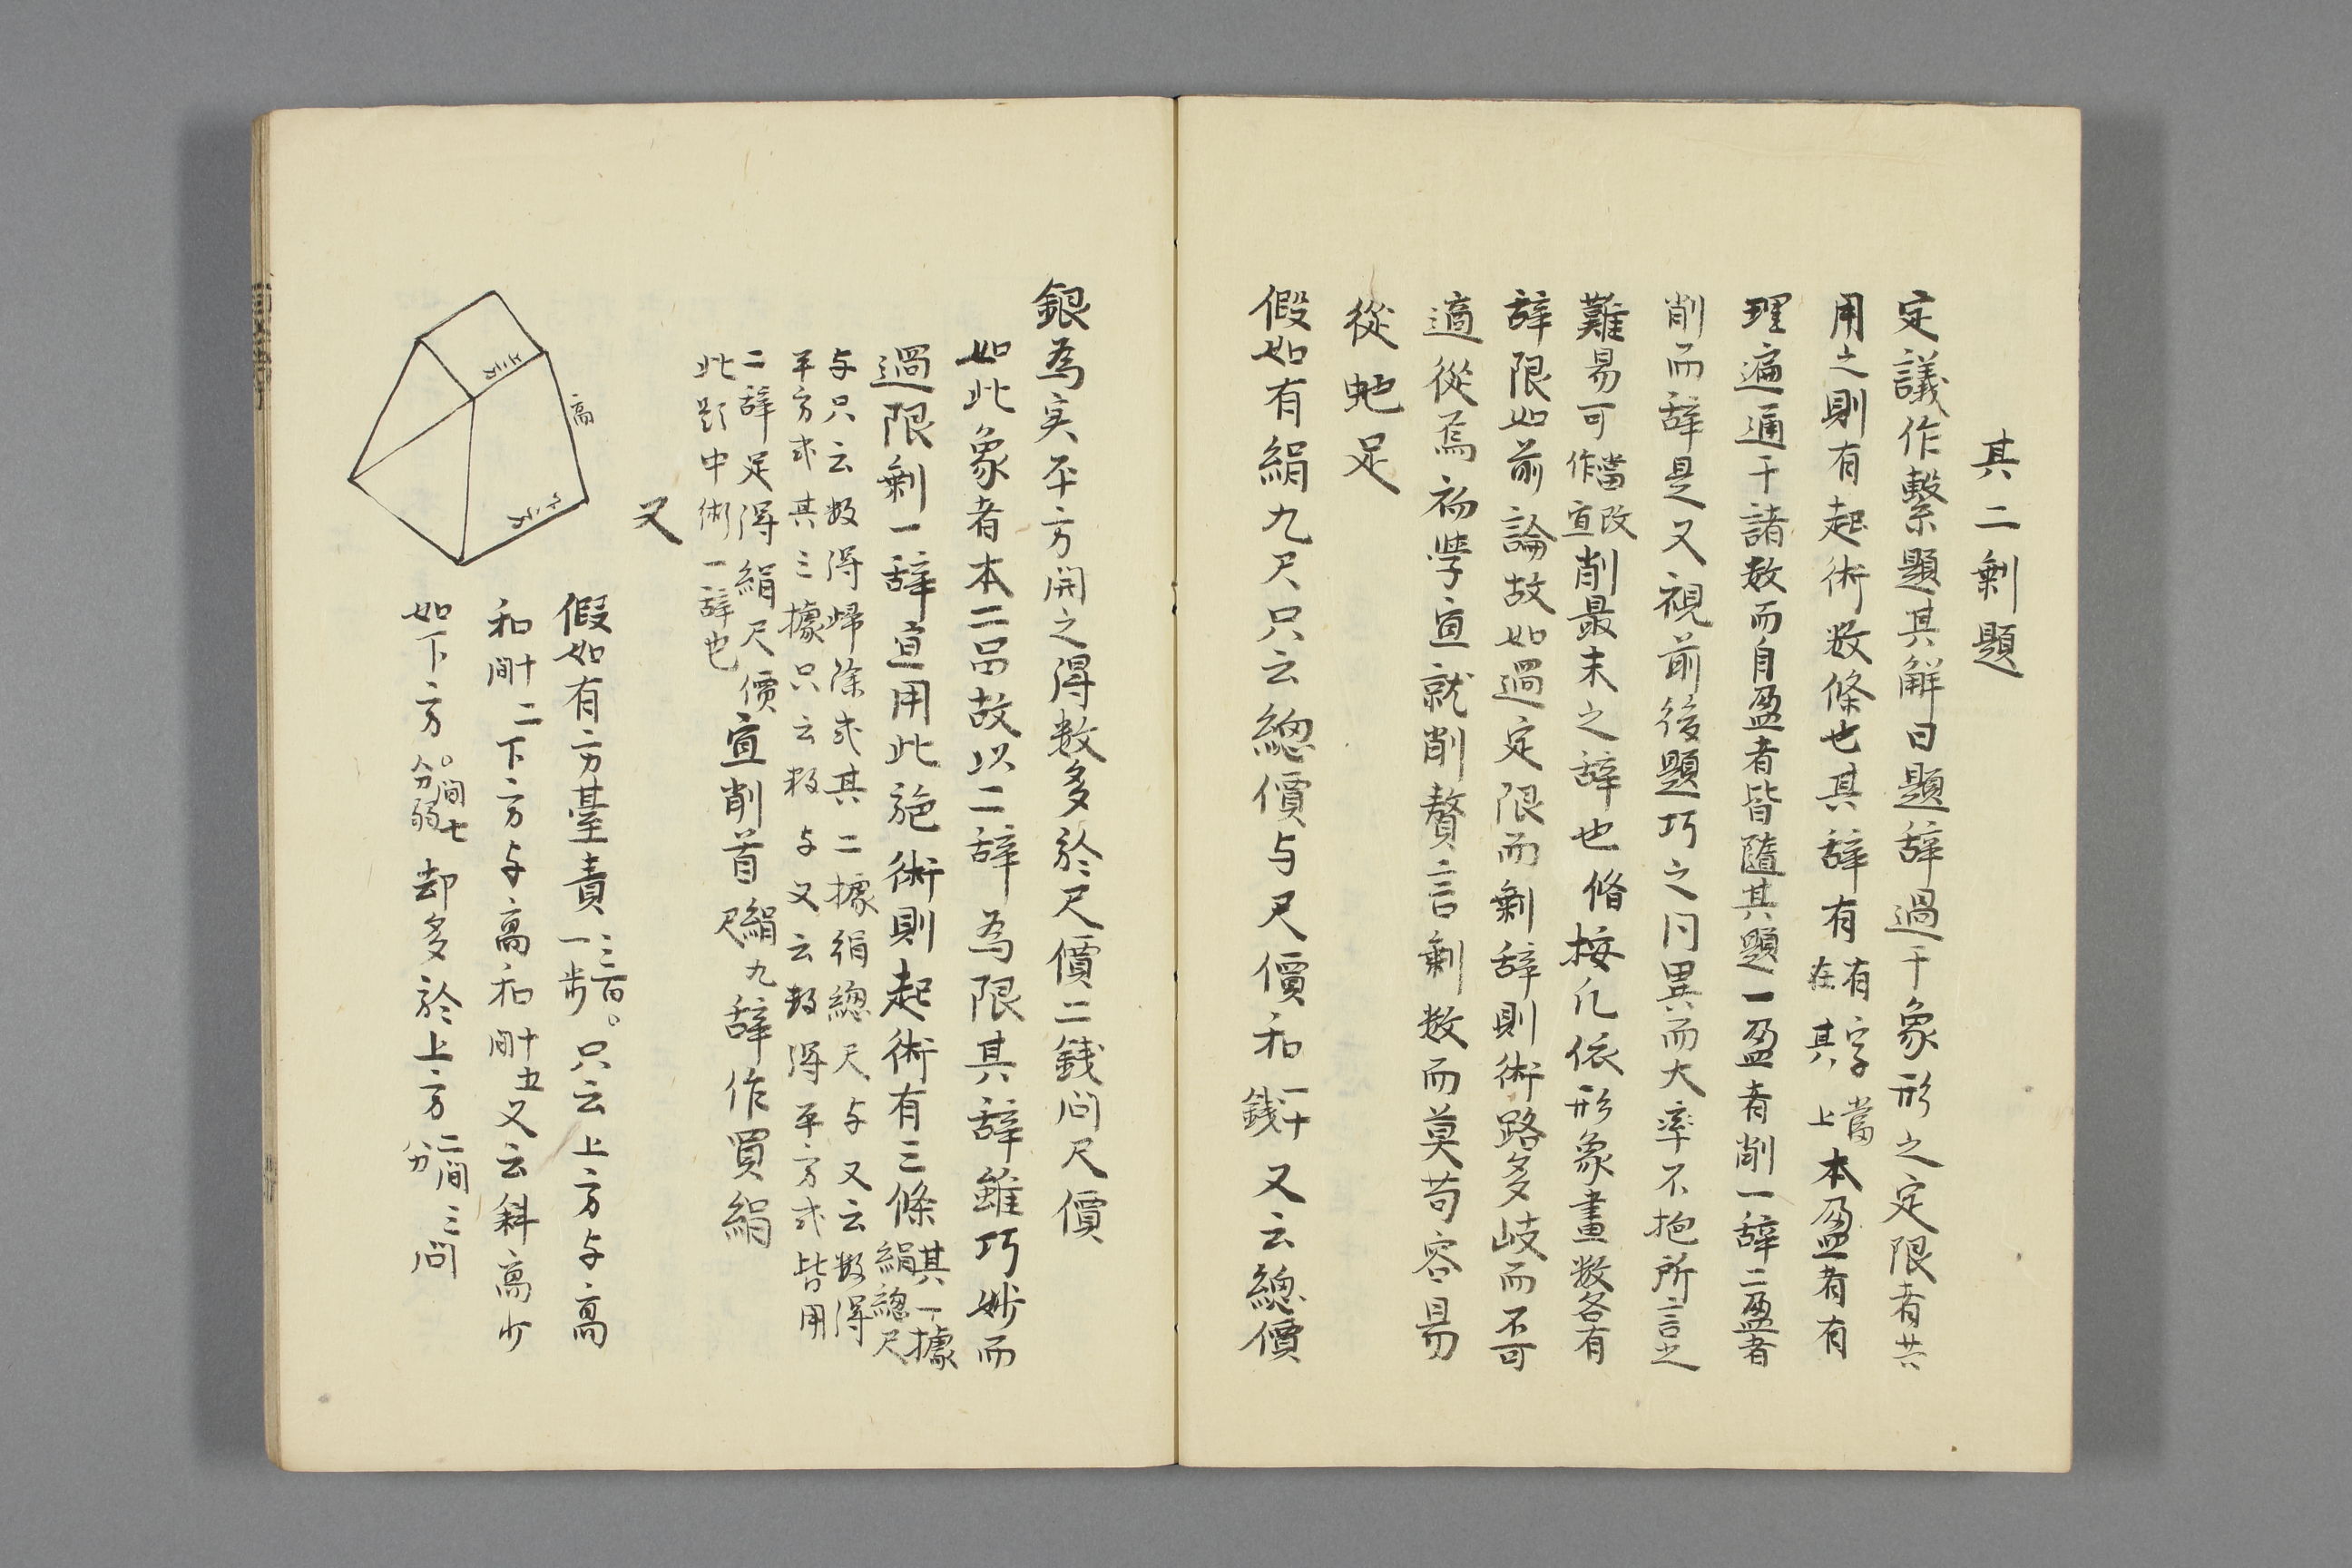 其二剰題
定議作繫題其解曰題辞過于象形之定限者共
用之則有起術数條也其辞有有字當在其上本盈者有
理遍通于諸数而自盈者皆隨其題一盈者削一辞二盈者
削而辞是又視前後題巧之同異而大率不抱所言之
難易可當改作宜削最末之辞也脩按凡依形象畫数各有
辞限如前論故如過定限而剰辞則術路多岐而不可
適從焉初學宜就削贅言剰数而莫苟容易
從虵足
假如有絹九尺只云總價与尺價和一十錢又云總價
銀為実平方開之得数多於尺價二錢問尺價
如此象者本二品故以二辞為限其辞雖巧妙而
過限剰一辞宜用此施術則起術有三條其一據絹總尺
与只云数得帰除式其二據絹總尺与又云数得
平方式其三據只云数与又云数得平方式皆用
二辞足得絹尺價宜削首絹九尺辞作買絹
此題中術一辞也
又
高
上方
下方
假如有方臺責三百〇一步只云上方与高
和十二間下方与高和十五間又云斜高少
如下方〇間七分弱却多於上方二間三分問